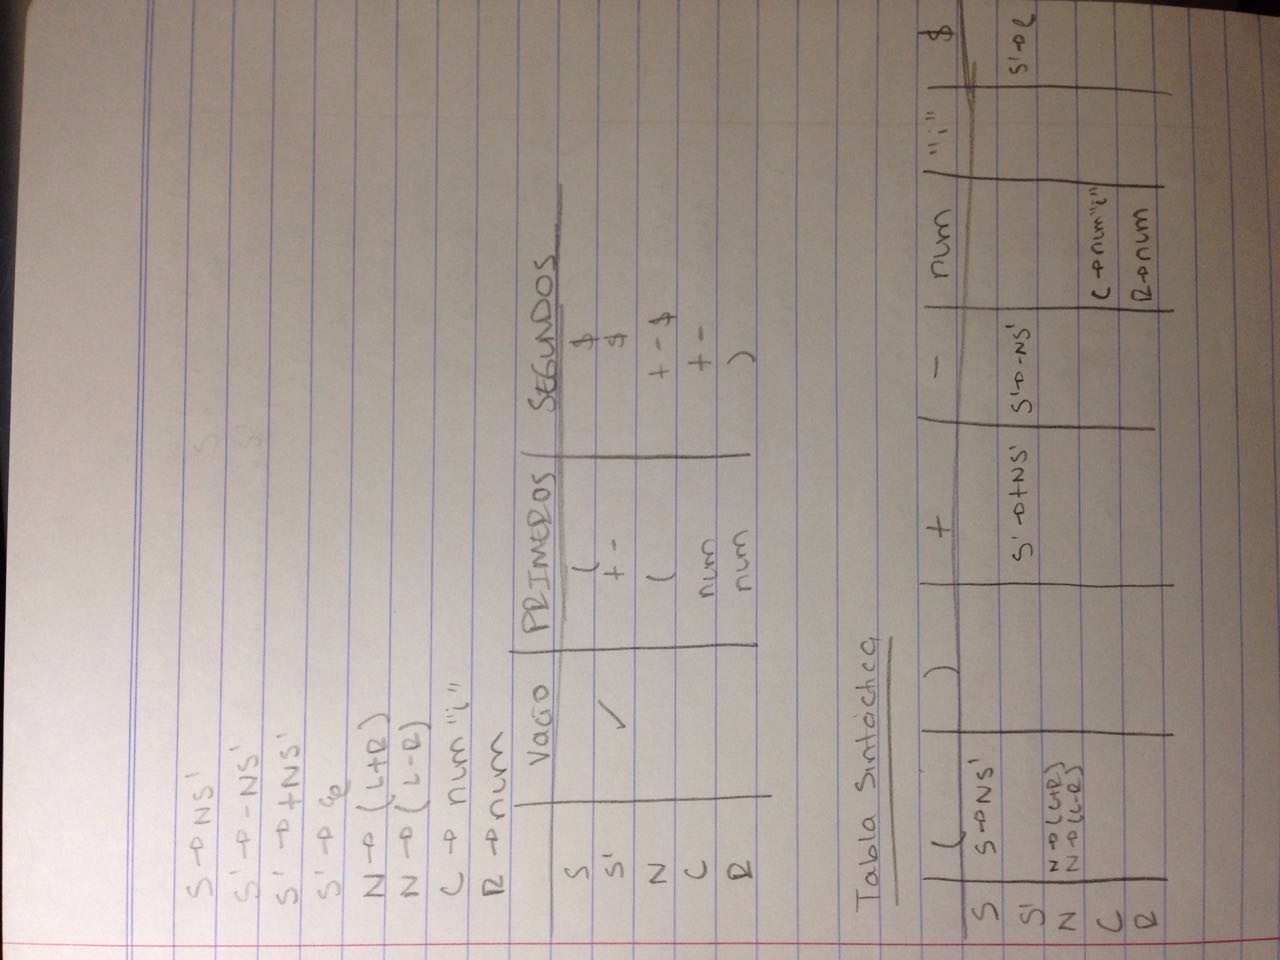 S → NS'
S' → -NS'
S' → +NS'
S' → e
N → (C+R)
N → (C-R)
C → num "i"
R → num
Vacio PRIMEROS SEGUNDOS
S ( $
S' ✓ + - $
N ( + - $
C num + -
R num )
Tabla Sintáctica
( ) + - num "i" $
S S→NS'
S' S'→+NS' S'→-NS' S'→e
N N→(C+R)
N→(C-R)
C C→num"i"
R R→num